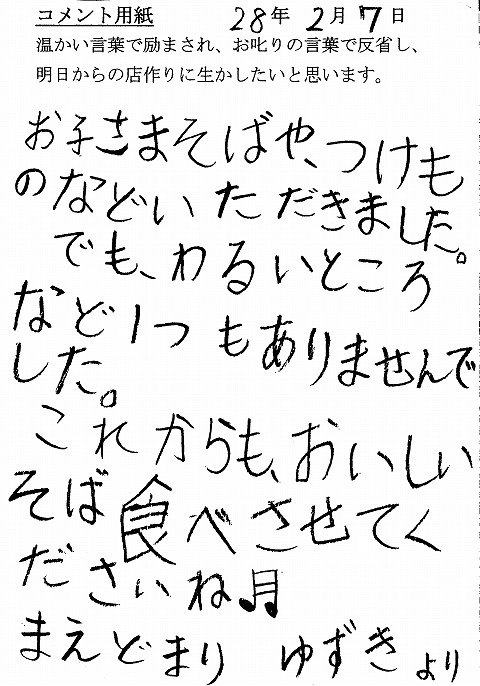 コメント用紙 28年2月7日
温かい言葉で励まされ、お叱りの言葉で反省し、
明日からの店作りに生かしたいと思います。
お子さまそばや、つけも
のなどいただきました。
でも、わるいところ
など1つもありませんで
した。
これからも、おいしい
そば食べさせてく
ださいね♫
まえどまり ゆずきより